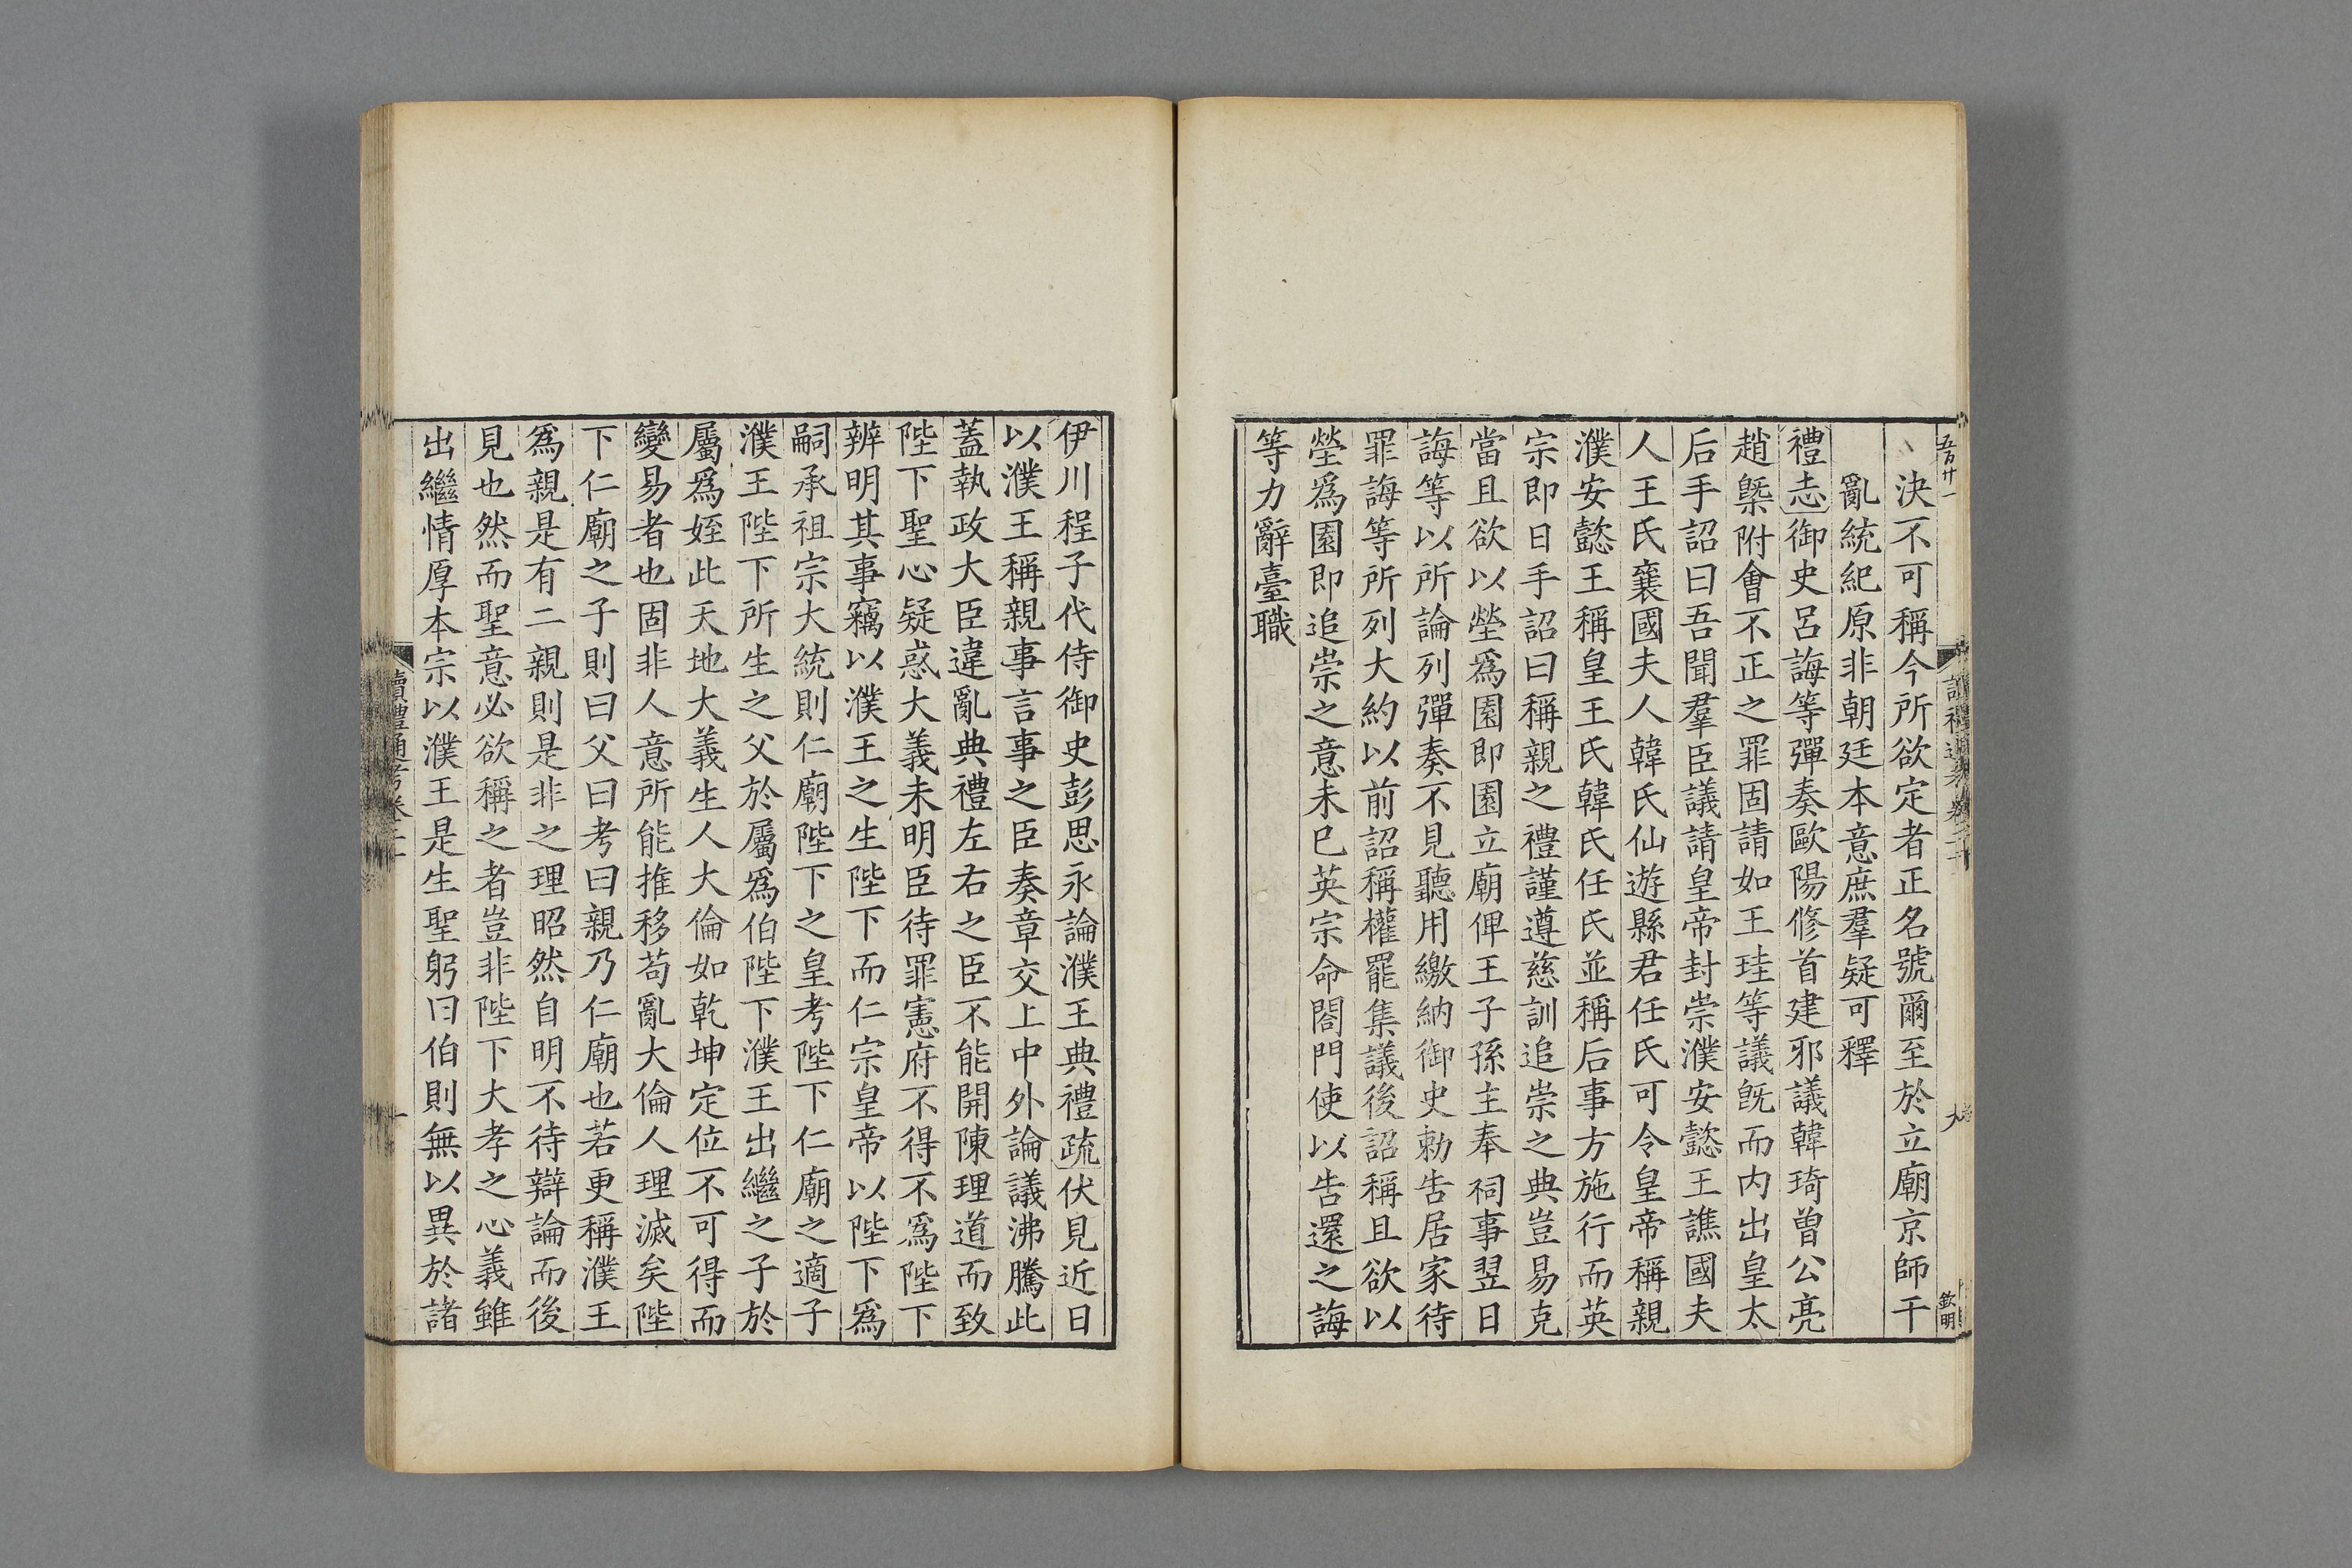 五百廿一
決不可稱今所欲定者正名號爾至於立廟京師干
亂統紀原非朝廷本意庶羣疑可釋
禮志御史呂誨等彈奏歐陽修首建邪議韓琦曾公亮
趙槩附會不正之罪固請如王珪等議旣而内出皇太
后手詔曰吾聞羣臣議請皇帝封崇濮安懿王譙國夫
人王氏襄國夫人韓氏仙遊縣君任氏可令皇帝稱親
濮安懿王稱皇王氏韓氏任氏並稱后事方施行而英
宗即日手詔曰稱親之禮謹遵慈訓追崇之典豈易克
當且欲以塋爲園即園立廟俾王子孫主奉祠事翌日
誨等以所論列彈奏不見聽用繳納御史勅告居家待
罪誨等所列大約以前詔稱權罷集議後詔稱且欲以
塋爲園即追崇之意未已英宗命閤門使以告還之誨
等力辭臺職
欽明
伊川程子代侍御史彭思永論濮王典禮疏伏見近日
以濮王稱親事言事之臣奏章交上中外論議沸騰此
蓋執政大臣違亂典禮左右之臣不能開陳理道而致
陛下聖心疑惑大義未明臣待罪憲府不得不爲陛下
辨明其事竊以濮王之生陛下而仁宗皇帝以陛下爲
嗣承祖宗大統則仁廟陛下之皇考陛下仁廟之適子
濮王陛下所生之父於屬爲伯陛下濮王出繼之子於
屬爲姪此天地大義生人大倫如乾坤定位不可得而
變易者也固非人意所能推移苟亂大倫人理滅矣陛
下仁廟之子則曰父曰考曰親乃仁廟也若更稱濮王
爲親是有二親則是非之理昭然自明不待辯論而後
見也然而聖意必欲稱之者豈非陛下大孝之心義雖
出繼情厚本宗以濮王是生聖躬曰伯則無以異於諸
讀禮通考卷二十